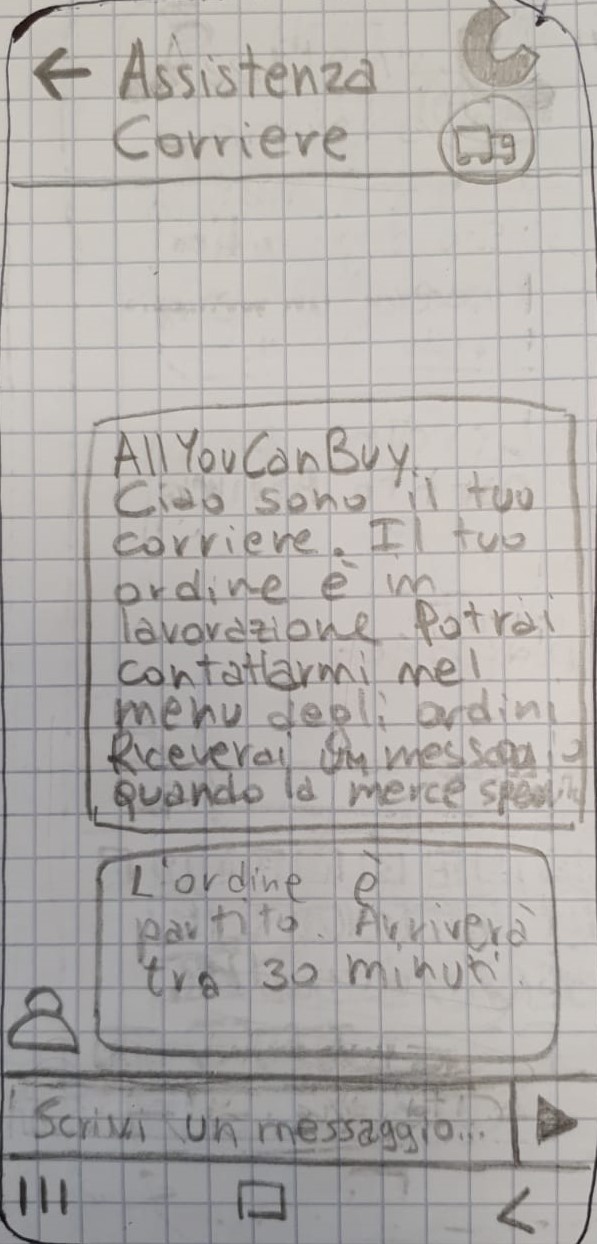 Assistenza
Corriere
AllYouCanBuy
Ciao sono il tuo
corriere. Il tuo
ordine è in
lavorazione Potrai
contattarmi nel
menu degli ordini
Riceverai un messaggio
quando la merce
L'ordine è
partito. Arriverà
tra 30 minuti.
Scrivi un messaggio...